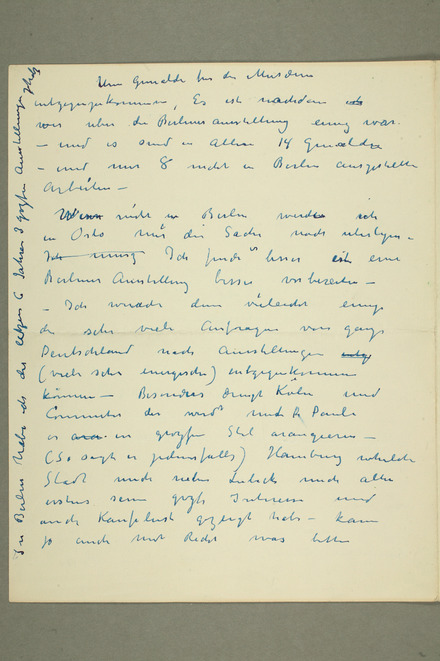 Um Gemälde für die Museen
entgegenzukommen, Es ist nachdem
wir über die Berliner ausstellung einig war
– und es sind in allem 14 Gemälde
– und nur 8 nicht in Berlin ausgestellte
Arbeiten –
nicht in Berlin werde ich
in Oslo mir die Sache noch überlegen –
Ich finde es besser eine
Berliner Ausstellung besser vorbereiten –
– Ich würde dann vieleicht einige
der sehr viele Anfragen von ganz
Deutschland nach Ausstellungen
(viele sehr energische) entgegenkommen
können – Besonders drengt Köln und
der wird
es in großen Stil arangieren –
(So sagt er jedenfalls) Hamburg welche
Stadt nach neben Lübeck mich aller
erstens sein großes Interesse und
auch Kauflust gezeigt hat – kann
ja auch mit Recht was bitten
In Berlin habe ich die letzten 6 Jahren 3 großen Ausstellungen gehabt